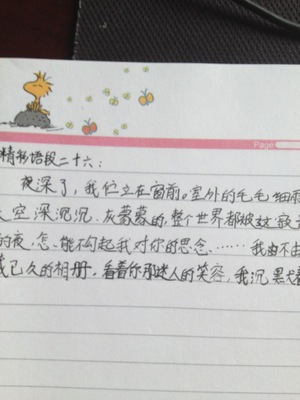 Page
精彩语段二十六：
夜深了，我伫立在窗前。室外的毛毛细雨
空深沉沉.灰蒙蒙的,整个世界都被这寂
的夜,怎能不勾起我对你的思念……我由不由
已久的相册，看着你那迷人的笑容,我沉默着